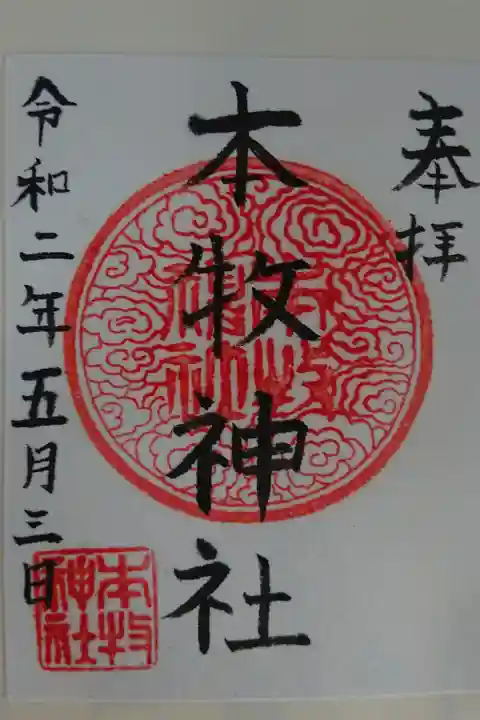 奉拝
本牧神社
令和二年五月三日
本牧
神社